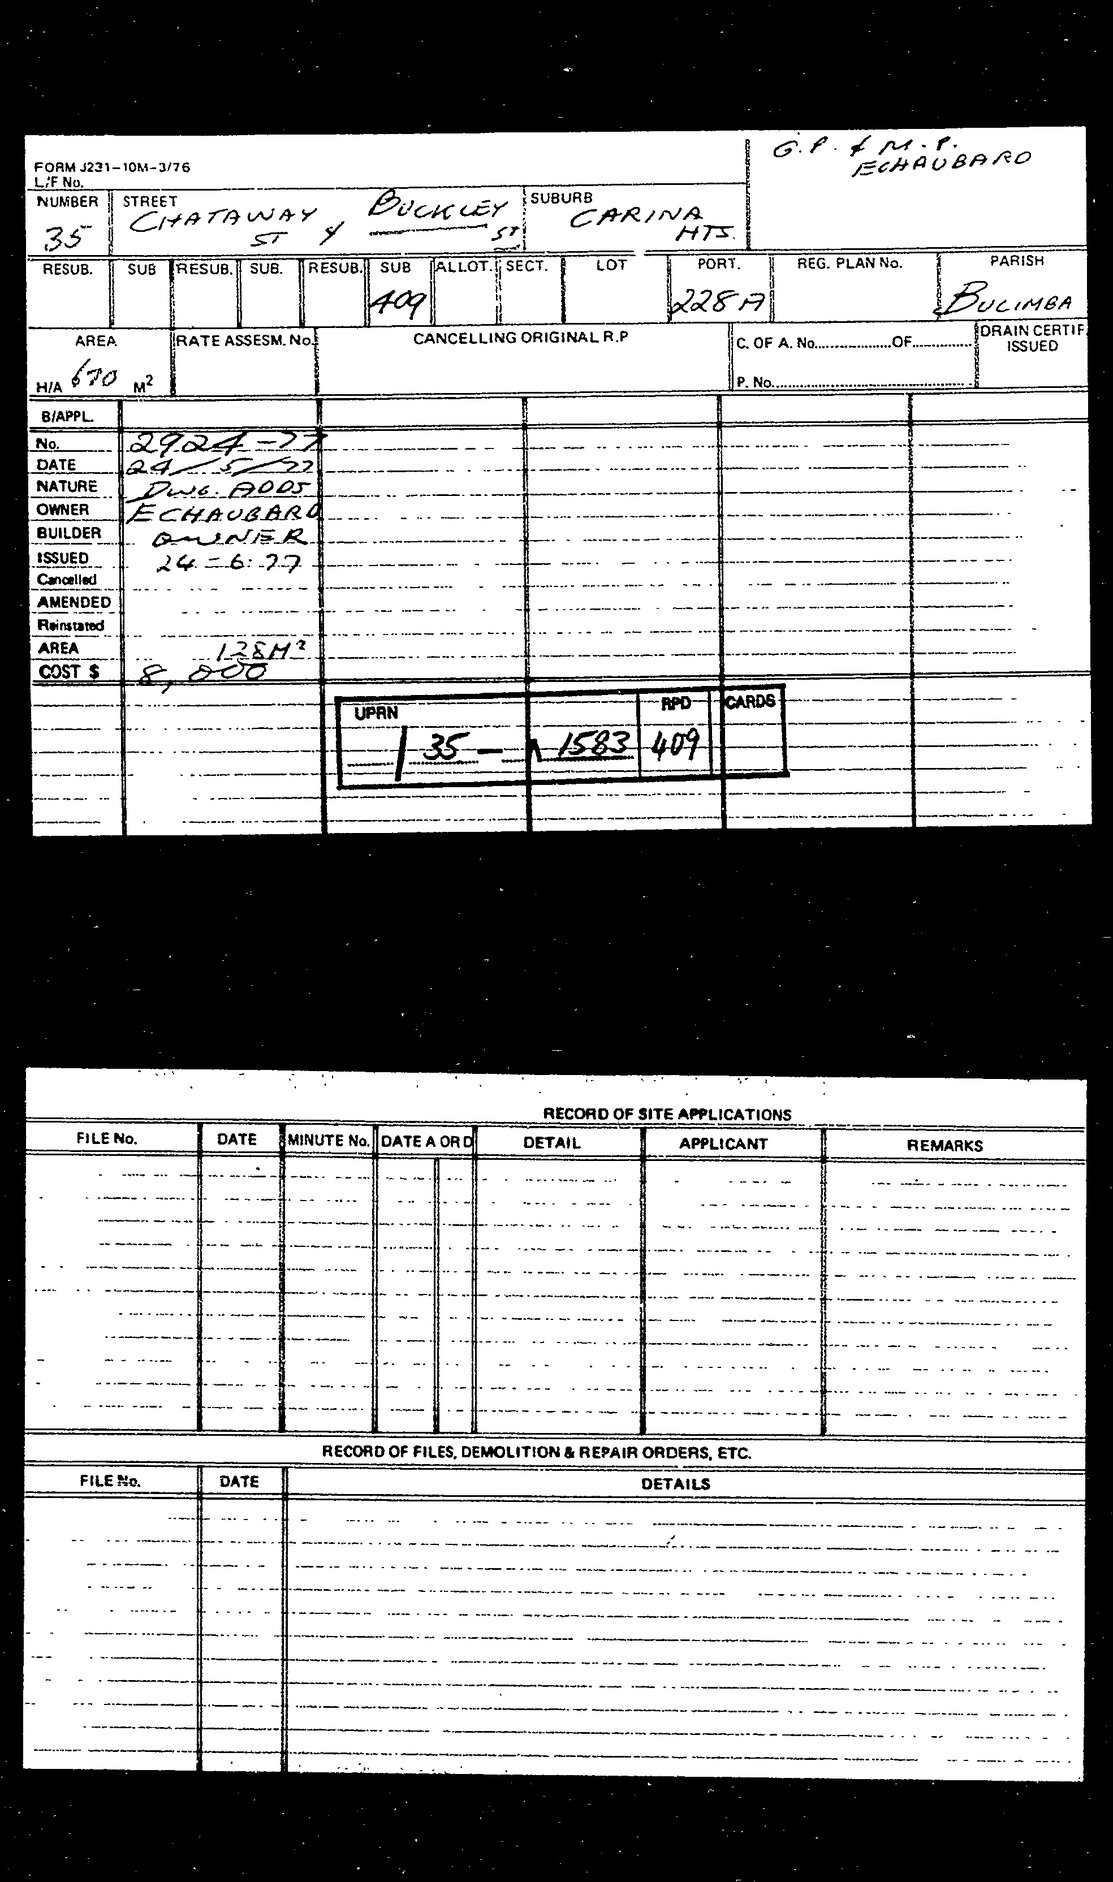 G.P. & M.P.
ECHAUBARD
FORM J231-10M-3/76
L/F No.
NUMBER STREET SUBURB
35 CHATAWAY ST & BUCKLEY ST CARINA HTS.
RESUB. SUB RESUB. SUB. RESUB. SUB ALLOT. SECT. LOT PORT. REG. PLAN No. PARISH
409 228A BULIMBA
AREA RATE ASSESM. No. CANCELLING ORIGINAL R.P C. OF A. No. OF DRAIN CERTIF. ISSUED
H/A 670 M² P. No.
B/APPL.
No. 2924-77
DATE 24/5/77
NATURE DWG. ADDS
OWNER ECHAUBARD
BUILDER OWNER
ISSUED 24-6-77
Cancelled
AMENDED
Reinstated
AREA 128M²
COST $ 8,000
UPRN RPD CARDS
/ 35 - 1583 409
RECORD OF SITE APPLICATIONS
FILE No. DATE MINUTE No. DATE A OR D DETAIL APPLICANT REMARKS
RECORD OF FILES, DEMOLITION & REPAIR ORDERS, ETC.
FILE No. DATE DETAILS